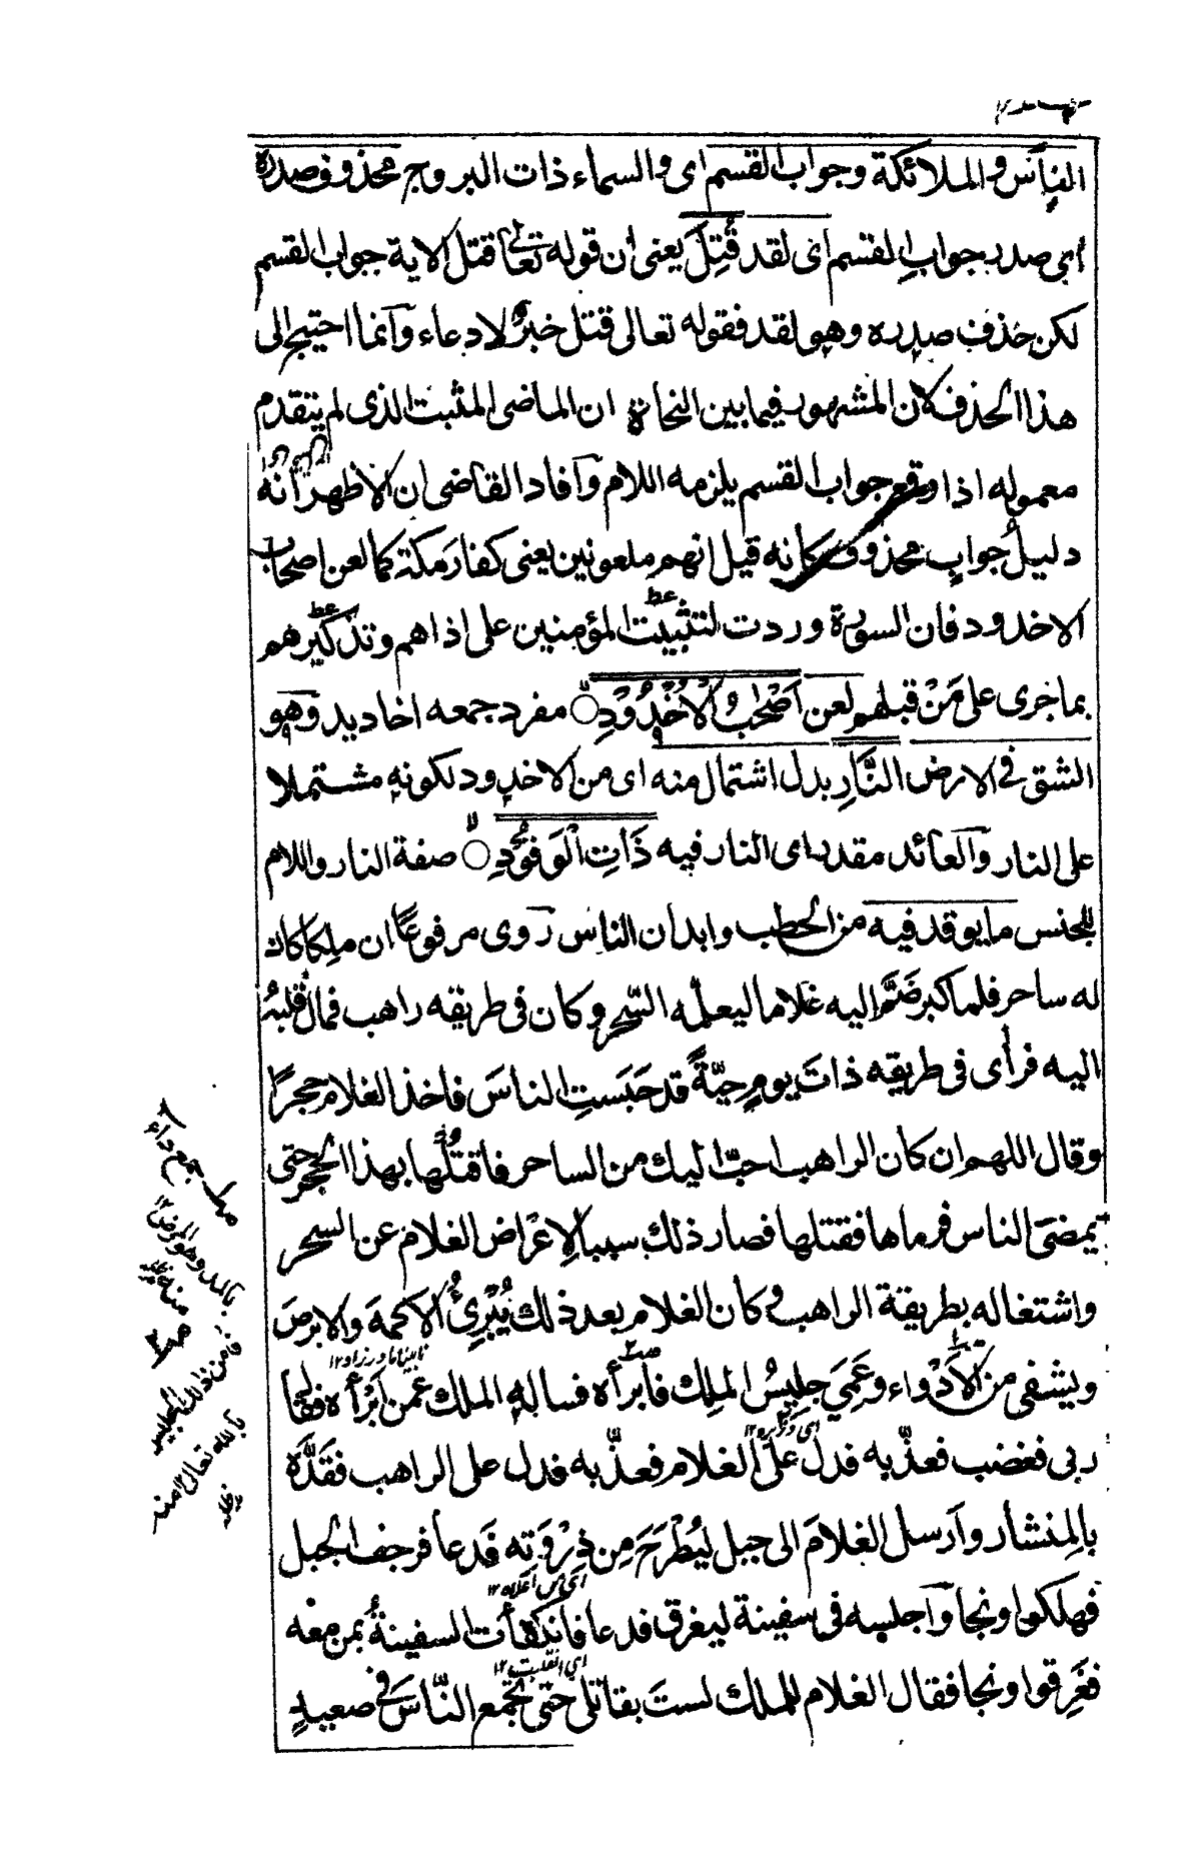 الناس والملائكة وجواب القسم اى والسماء ذات البروج محذوف صدره
اى صدر جواب القسم اى لقد قُتِلَ يعنى ان قوله تعالى قتل الاية جواب القسم
لكن حذف صدره وهو لقد فقوله تعالى قتل خبرٌ لا دعاء وانما احتيج الى
هذا الحذف لان المشهور فيما بين النحاة ان الماضى المثبت الذى لم يتقدم
معموله اذا وقع جواب القسم يلزمه اللام وافاد القاضى ان الاظهر انه
دليلُ جوابٍ محذوف كانه قيل انهم ملعونين يعنى كفار مكة كما لعن اصحاب
الاخدود فان السورة وردت لتثبيت المؤمنين على اذاهم وتذكيرهم
بما جرى على مَنْ قبلهم لعن اَصْحٰبُ الْاُخْدُوْدِ مفرد جمعه اخاديد وهو
الشق فى الارض النَّارِ بدل اشتمال منه اى من الاخدود لكونه مشتملا
على النار والعائد مقدر اى النار فيه ذَاتِ الْوَقُوْدِ صفة النار واللام
للجنس ما يوقد فيه من الحطب وابدان الناس روى مرفوعًا ان ملكا كان
له ساحر فلما كبر ضَمَّ اليه غلاما ليعلّمه السّحر وكان فى طريقه راهب فمال قلبُه
اليه فرأى فى طريقه ذاتَ يومٍ حيّةً قد حَبَسَتِ الناسَ فاخذ الغلام حجرًا
وقال اللهم ان كان الراهب احبّ اليك من الساحر فاقتُلْها بهذا الحجر حتى
يمضىَ الناس فرماها فقتلها فصار ذلك سببا لاِعْراض الغلام عن السحر
واشتغاله بطريقة الراهب وكان الغلام بعد ذلك يُبْرِئُ الاَكْمَهَ والابرصَ
نابينا مادرزاد ١٢
ويشفى من الاَدْواء وعَمِىَ جليسُ الملِك فابرأه فساله الملك عمّن اَبْرَأه فقال
ربى فغضب فعذّبه فدلّ على الغلام فعذّبه فدل على الراهب فقَدَّه
بالِمنشار وارسل الغلامَ الى جبل ليُطْرَحَ مِن ذِرْوَتِه فدعا فرجف الجبل
اى من اعلاه ١٢
فهلكوا ونجا واجلسه فى سفينة ليغرق فدعا فانكفأت السفينةُ بمن معه
اى انقلبت ١٢
فغَرِقوا ونجا فقال الغلام للملك لستَ بقاتلى حتى تجمع النّاسَ فى صعيدٍ
جمع داء
بالمد وهو المرض ١٢
منه
فامن ذلك الجليس
بالله تعالى ١٢ منه